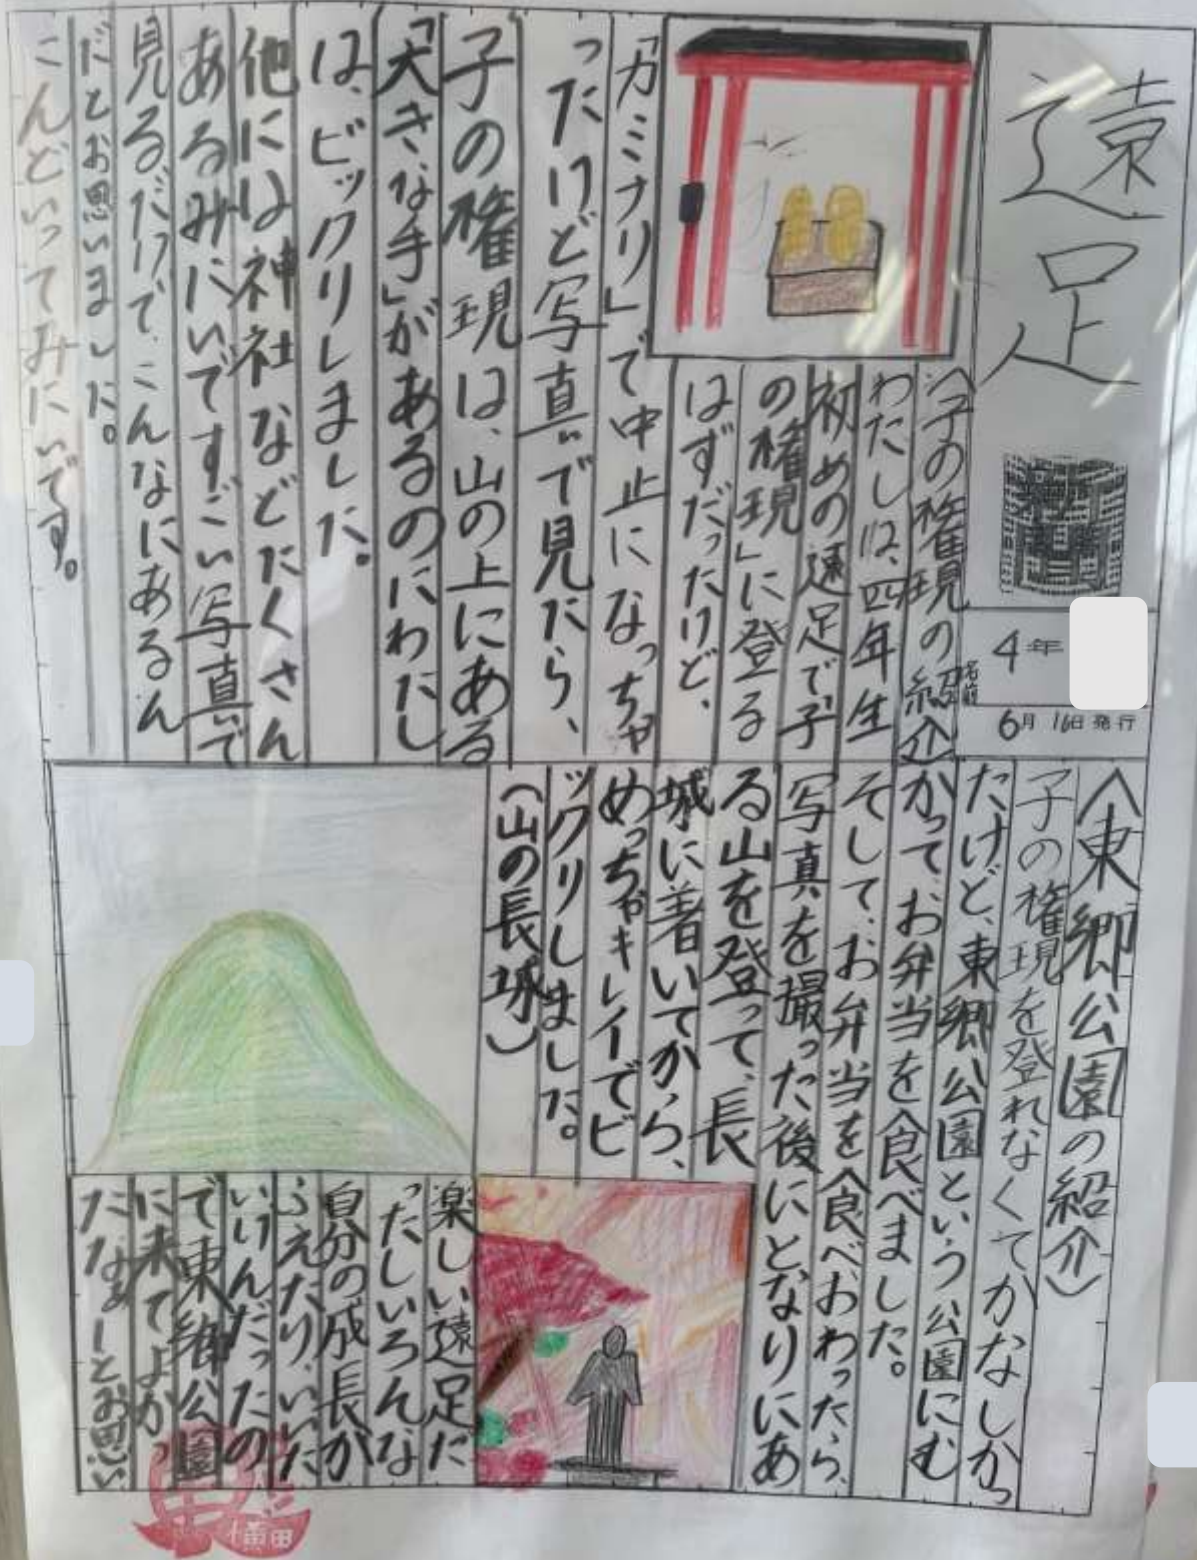 遠足
4年
名前
6月16日発行
〈子の権現の紹介〉
わたしは、四年生
初めの遠足で「子
の権現」に登る
はずだったけど、
「カミナリ」で中止になっちゃ
ったけど写真で見たら、
子の権現は、山の上にある
「大きな手」があるのにわたし
は、ビックリしました。
他には神社などたくさん
あるみたいですごい写真で
見るだけで、こんなにあるん
だとお思いました。
こんどいってみたいです。
〈東郷公園の紹介〉
子の権現を登れなくてかなしかっ
たけど、東郷公園という公園にむ
かって、お弁当を食べました。
そして、お弁当を食べおわったら、
写真を撮った後にとなりにあ
る山を登って、長
城に着いてから、
めっちゃキレイーでビ
ックリしました。
(山の長城)
楽しい遠足だ
ったしいろんな
自分の成長が
ふえたり、いた
いけんだったの
で東郷公園
に来てよかっ
たなぁーとお思い
横田